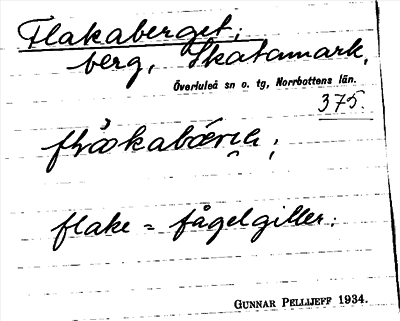 Flakaberget;
berg, Skatamark,
Överluleå sn o. tg, Norrbottens län.
375.
flake = fågelgiller.
GUNNAR PELLIJEFF 1934.